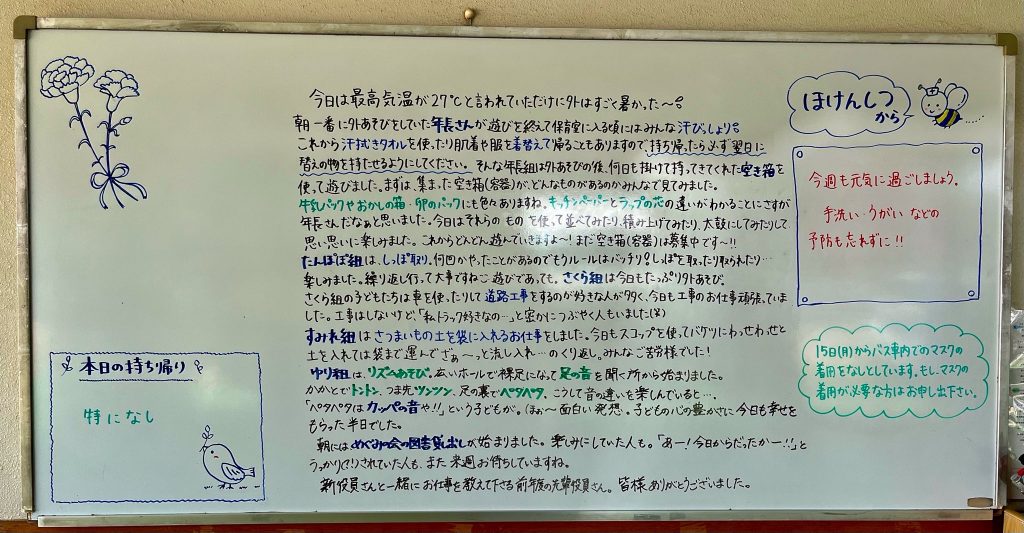 今日は最高気温が27℃と言われていただけに外はすごく暑かった〜。
朝一番に外あそびをしていた年長さんが遊びを終えて保育室に入る頃にはみんな汗びっしょり。
これから汗拭きタオルを使ったり肌着や服を着替えて帰ることもありますので、持ち帰ったら必ず翌日に
替えの物を持たせるようにしてください。そんな年長組は外あそびの後、何日も掛けて持ってきてくれた空き箱を
使って遊びました。まずは、集まった空き箱(容器)が、どんなものがあるのかみんなで見てみました。
牛乳パックやおかしの箱・卵のパックにも色々ありますね。キッチンペーパーとラップの芯の違いがわかることにさすが
年長さんだなぁと思いました。今日はそれらのものを使って並べてみたり、積み上げてみたり、太鼓にしてみたりして
思い思いに楽しみました。これからどんどん遊んでいきますよ〜!まだ空き箱(容器)は募集中です〜!!
たんぽぽ組は、しっぽ取り。何回かやったことがあるのでもうルールはバッチリ!しっぽを取ったり取られたり…
楽しみました。繰り返し行って大事ですね。遊びであっても。さくら組は今日もたっぷり外あそび。
さくら組の子どもたちは車を使ったりして道路工事をするのが好きな人が多く、今日も工事のお仕事頑張っていま
した。工事はしないけど、「私トラック好きなの…」と密かにつぶやく人もいました(笑)
すみれ組はさつまいもの土を袋に入れるお仕事をしました。今日もスコップを使ってバケツにわっせわっせと
土を入れては袋まで運んでざぁ〜っと流し入れ…のくり返し。みんなご苦労様でした!
ゆり組は、リズムあそび。広いホールで裸足になって足の音を聞く所から始まりました。
かかとでトントン、つま先ツンツン、足の裏でペタペタ、こうして音の違いを楽しんでいると…、
「ペタペタはカッパの音や!!」という子どもが。(ほぉ〜面白い発想。子どもの心の豊かさに今日も幸せを
もらった半日でした。
朝にはめぐみの会の図書貸し出しが始まりました。楽しみにしていた人も。「あー!今日からだったかー!!」と
うっかりされていた人も、また来週お待ちしていますね。
新役員さんと一緒にお仕事を教えて下さる前年度の先輩役員さん。皆様ありがとうございました。
ほけんしつ
から
今週も元気に過ごしましょう。
手洗い・うがいなどの
予防も忘れずに!!
15日(月)からバス車内でのマスクの
着用をなしとしています。もし、マスクの
着用が必要な方はお申し出下さい。
本日の持ち帰り
特になし